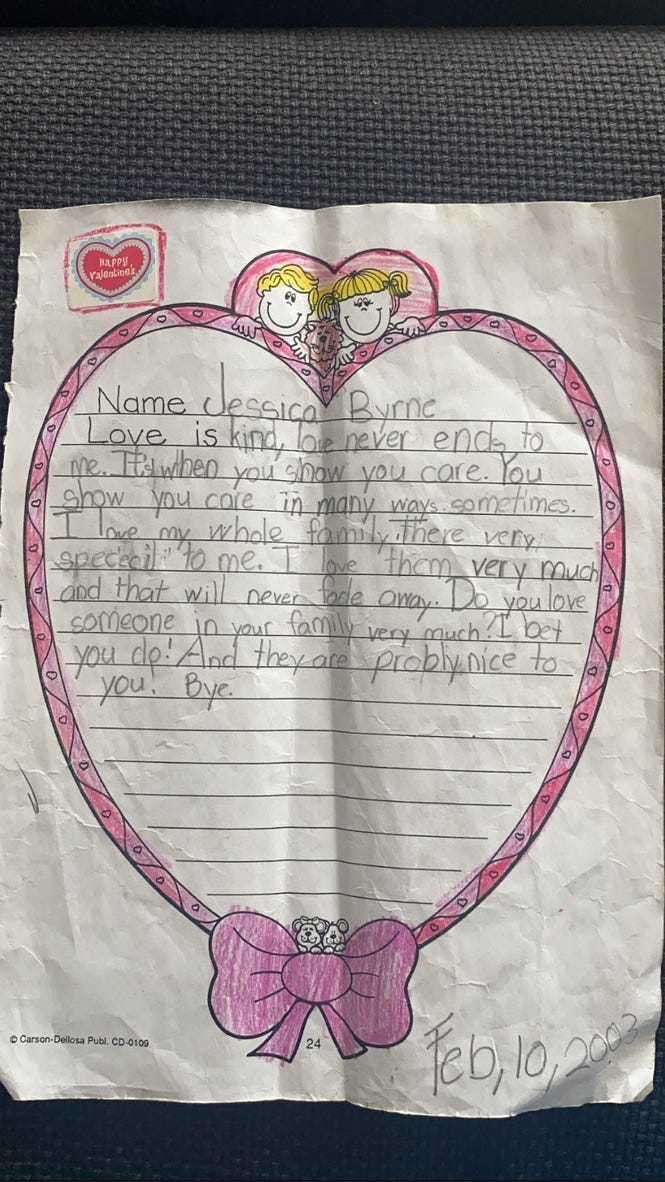 Happy
Valentines
Name Jessica Byrne
Love is kind, love never ends to
me. It's when you show you care. You
show you care in many ways sometimes.
I love my whole family. there very
spececil to me. I love them very much
and that will never fade away. Do you love
someone in your family very much? I bet
you do! And they are probly nice to
you! Bye.
© Carson-Dellosa Publ. CD-0109
24
Feb, 10, 2003